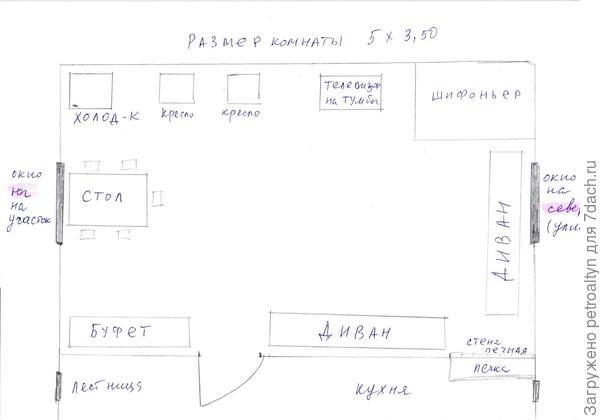 РАЗМЕР КОМНАТЫ 5 х 3,50
ХОЛОД-К
КРЕСЛО
КРЕСЛО
ТЕЛЕВИЗОР
НА ТУМБОЧ
ШИФОНЬЕР
ОКНО
ЮГ
НА
УЧАСТОК
СТОЛ
ДИВАН
ОКНО
НА
СЕВЕ
(УЛИ
БУФЕТ
ДИВАН
СТЕНА
ПЕЧНАЯ
ПЕЧКА
ЛЕСТНИЦА
КУХНЯ
Загружено petroaltyn для 7dach.ru